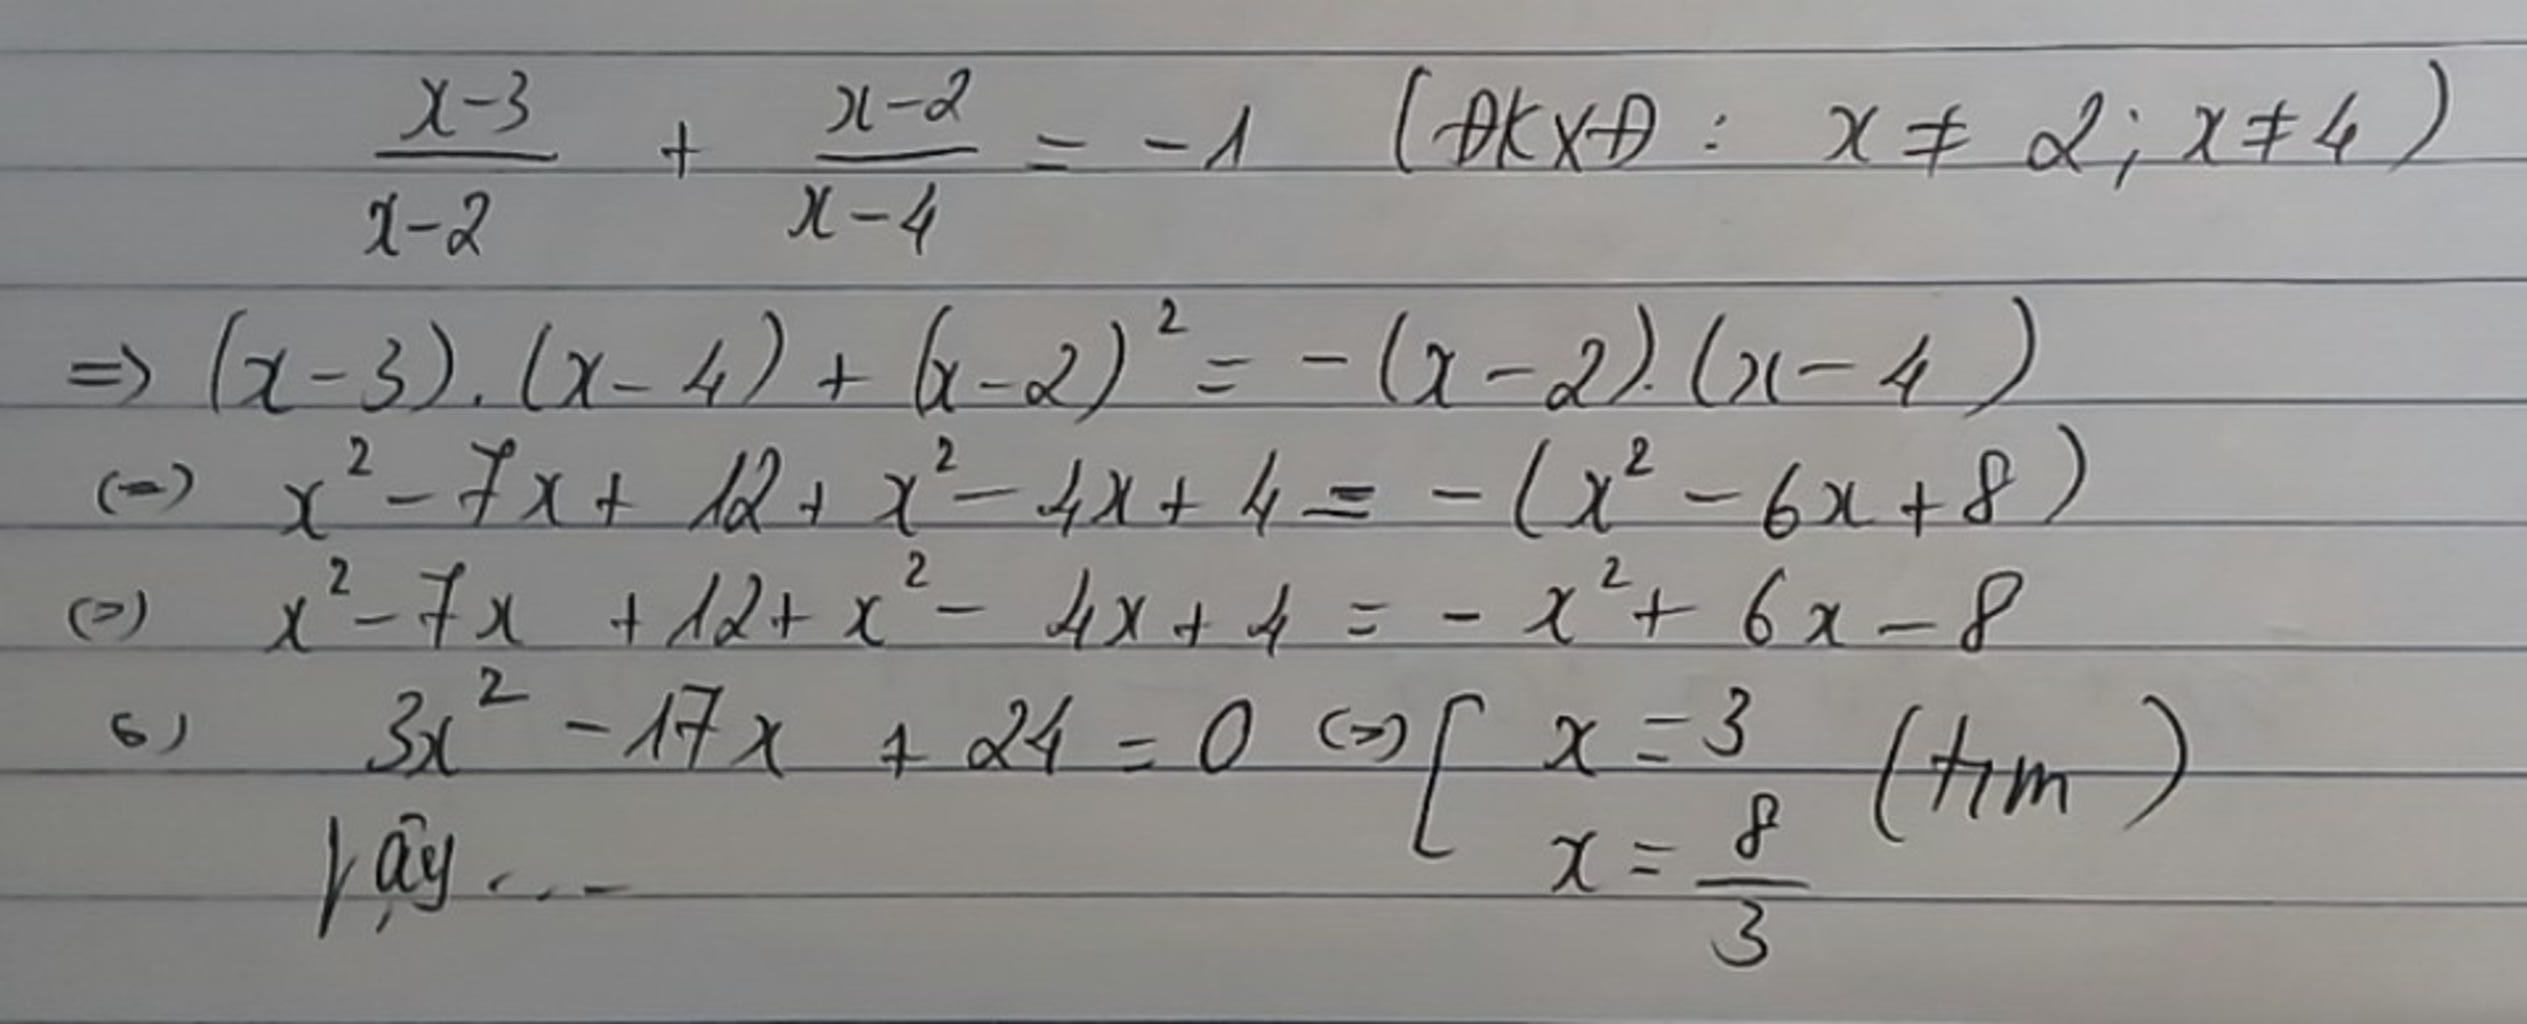 x-3/x-2 + x-2/x-4 = -1 (ĐKXĐ : x ≠ 2; x ≠ 4)
=> (x-3).(x-4) + (x-2)² = -(x-2).(x-4)
<=> x² - 7x + 12 + x² - 4x + 4 = -(x² - 6x + 8)
<=> x² - 7x + 12 + x² - 4x + 4 = - x² + 6x - 8
<=> 3x² - 17x + 24 = 0 <=> [ x = 3 x = 8/3 (t/m)
Vậy ...